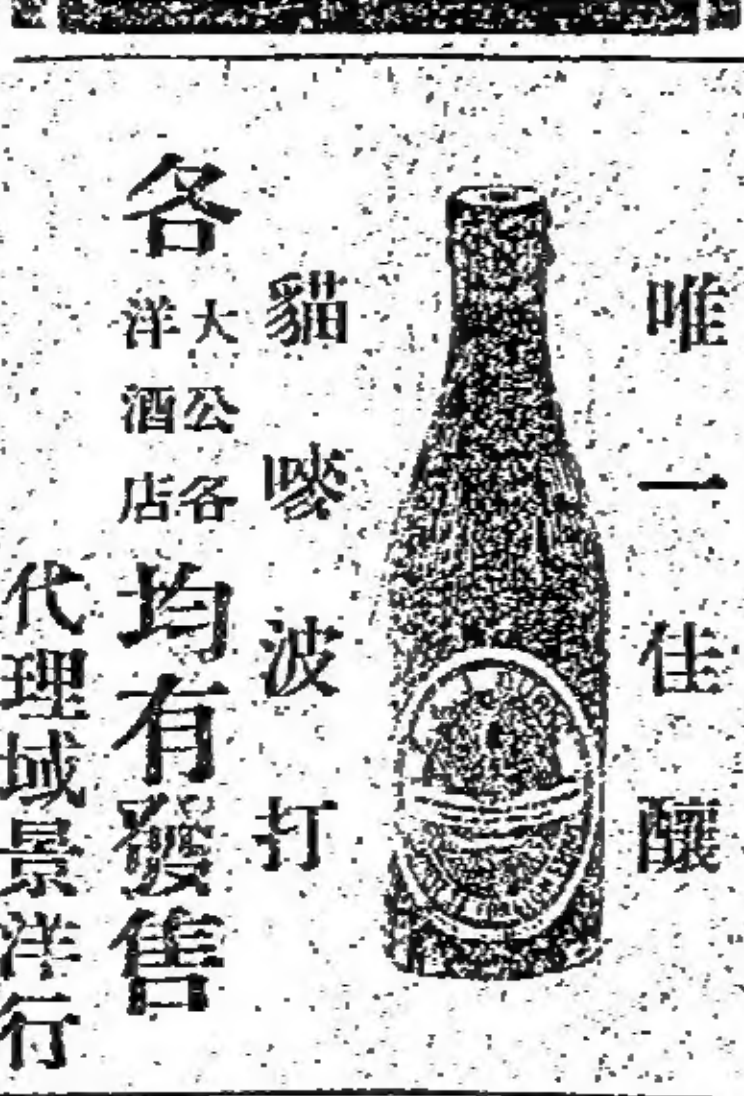 唯一佳釀
貓嘜波打
各大公各洋酒店均有發售
代理域景洋行